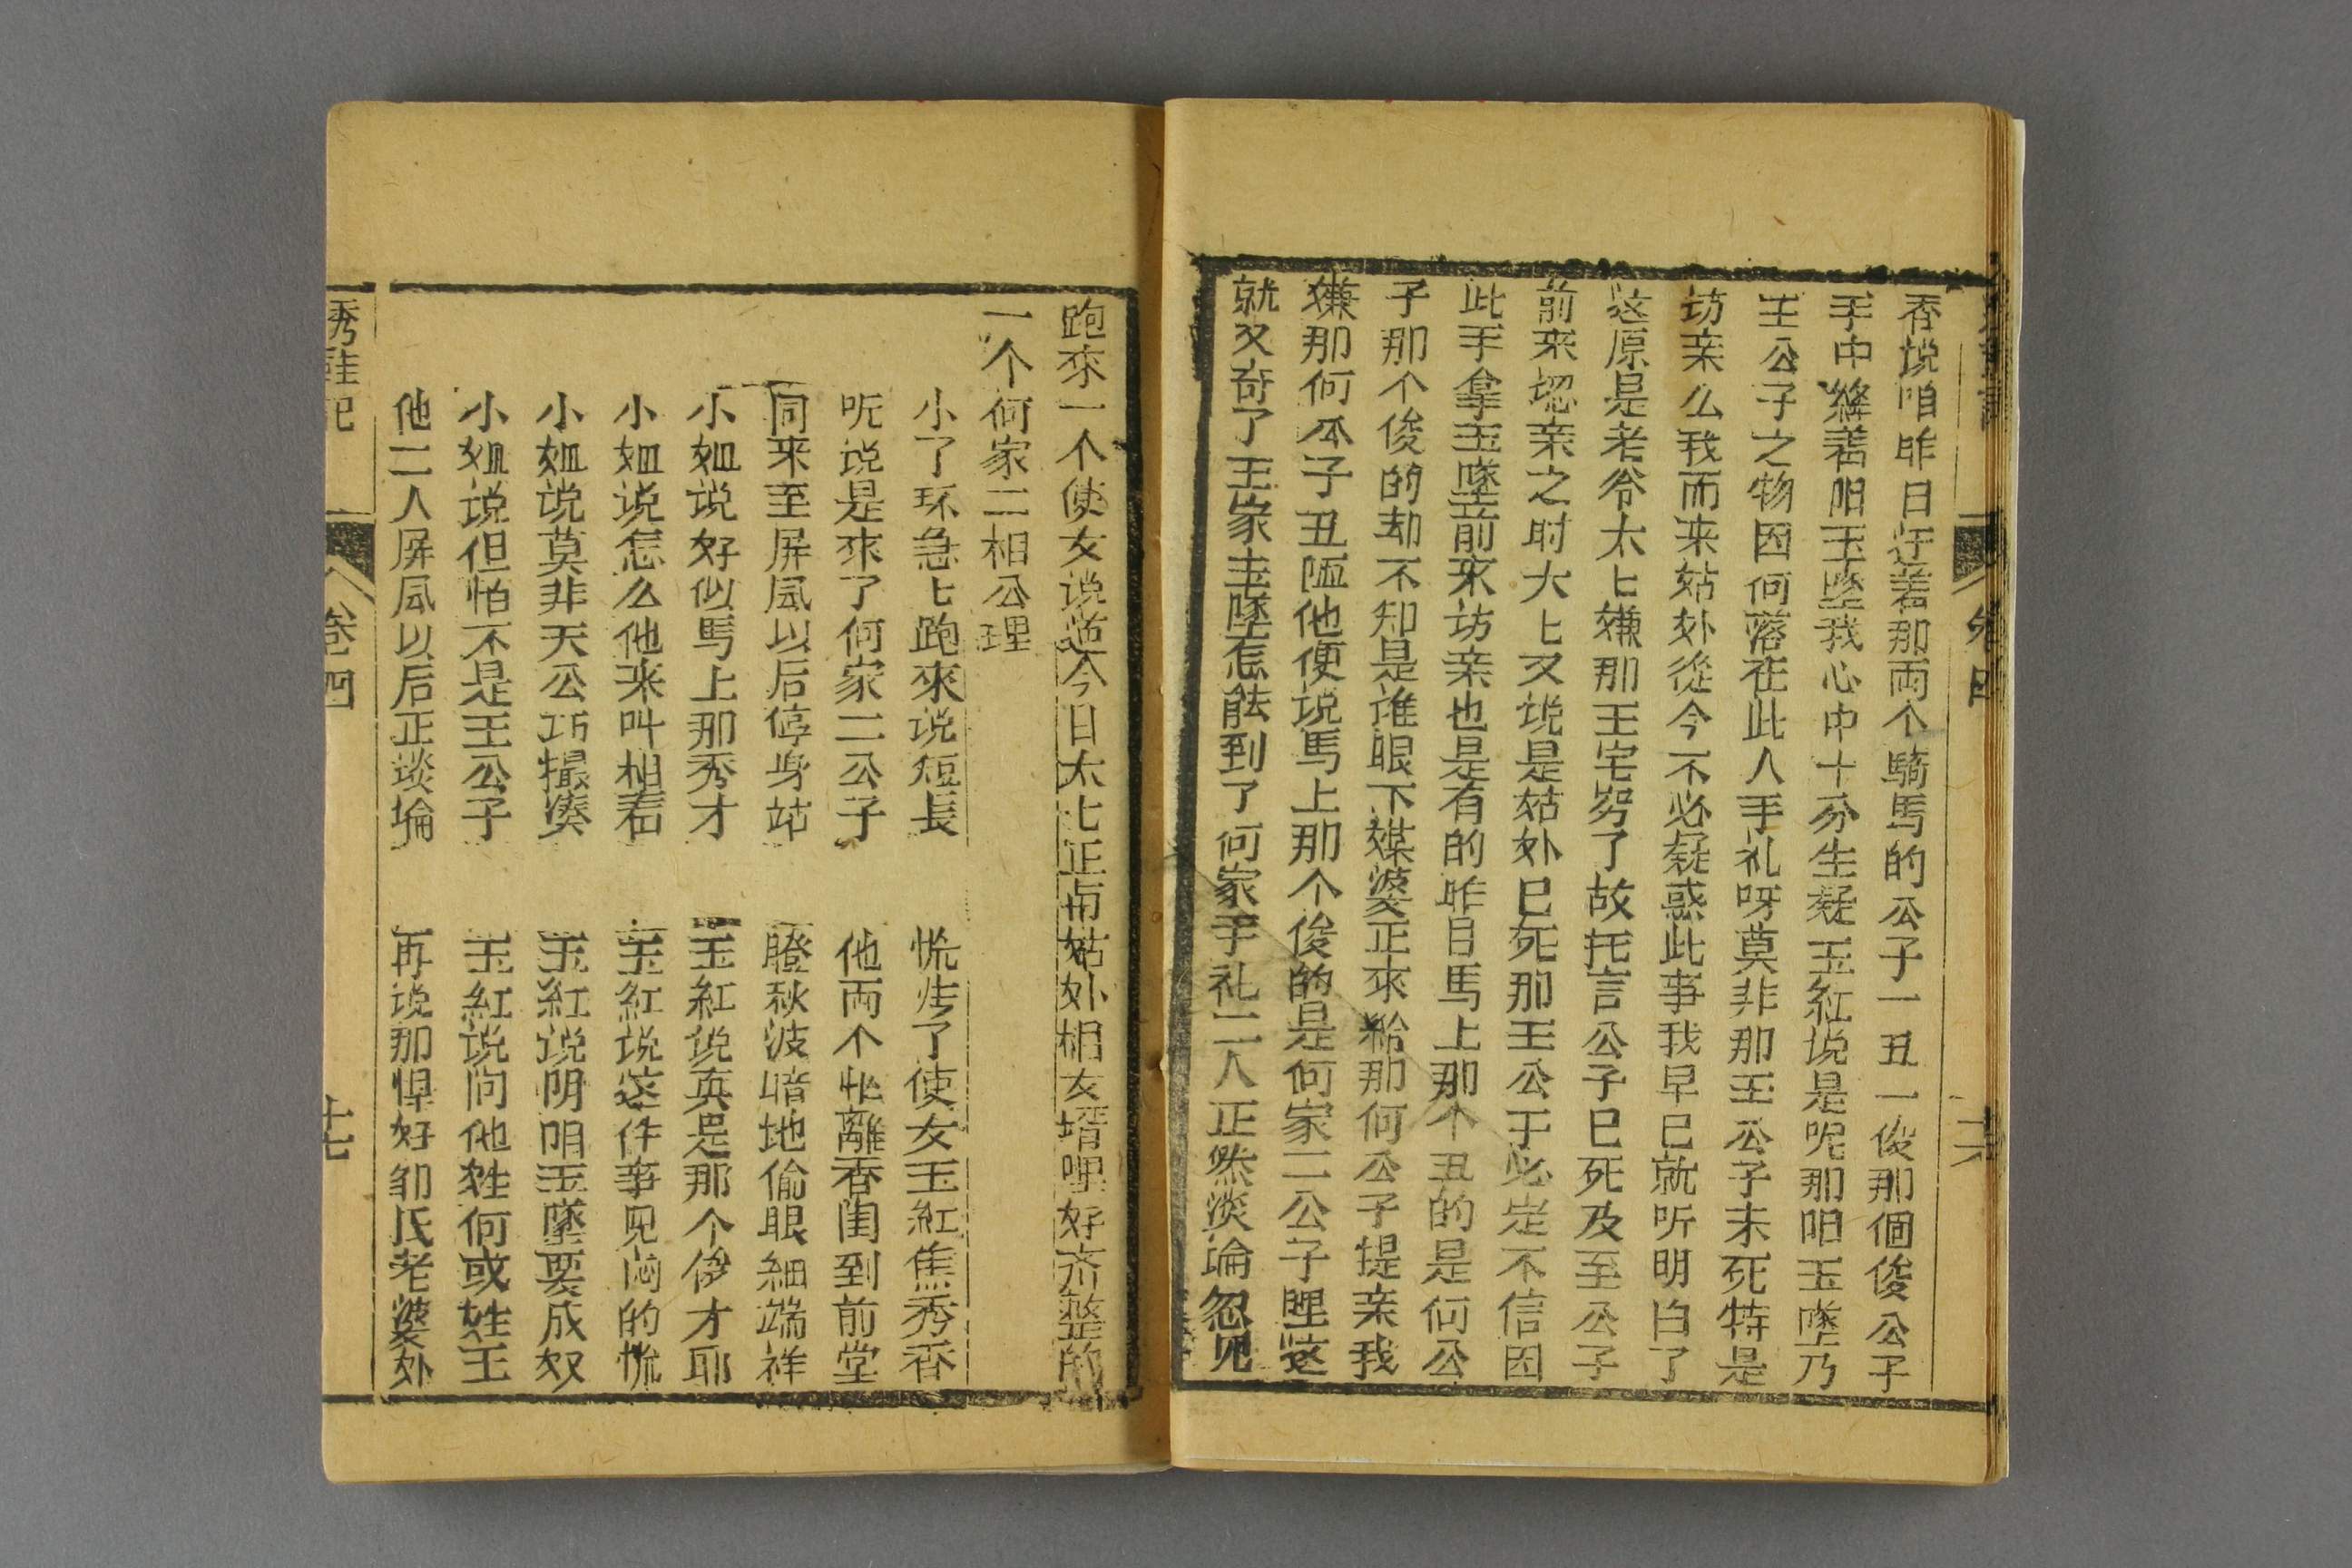 卷四
香说咱昨日迂着那両个騎馬的公子一丑一俊那個俊公子
手中絳着阳玉墜我心中十分生疑玉紅说是呢那阳玉墜乃
王公子之物因何落在此人手礼呀莫非那王公子未死特是
坊亲么我而来姑外從今不必疑惑此事我早已就听明白了
这原是老爷太匕嫌那王宅穷了故托言公子已死及至公子
前来認亲之时太匕又说是姑外已死那王公子必定不信因
此手拿玉墜前來访亲也是有的昨日馬上那个丑的是何公
子那个俊的却不知是谁眼下媒婆正來給那何公子提亲我
嫌那何公子丑陋他便说馬上那个俊的是何家二公子哩这
就又奇了王家玉墜怎能到了何家手礼二人正然淡論忽见
跑來一个使女说道今日太七正与姑外相女壻哩好齐整的
一个何家二相公理
小了环急匕跑來说短長
慌坏了使女玉紅焦秀香
呒说是來了何家二公子
他両个忙離香闺到前堂
同来至屏風以后停身站
瞪秋波暗地偷眼細端祥
小姐说好似馬上那秀才
玉紅说真是那个俊才耶
小姐说怎么他来叫相看
玉紅说这件事见闷的慌
小姐说莫非天公巧撮湊
玉紅说阴阳玉墜要成奴
小姐说但怕不是王公子
玉紅说问他姓何或姓王
他二人屏風以后正談論
再说那悍好邹氏老婆外
綉鞋記
卷四
十七